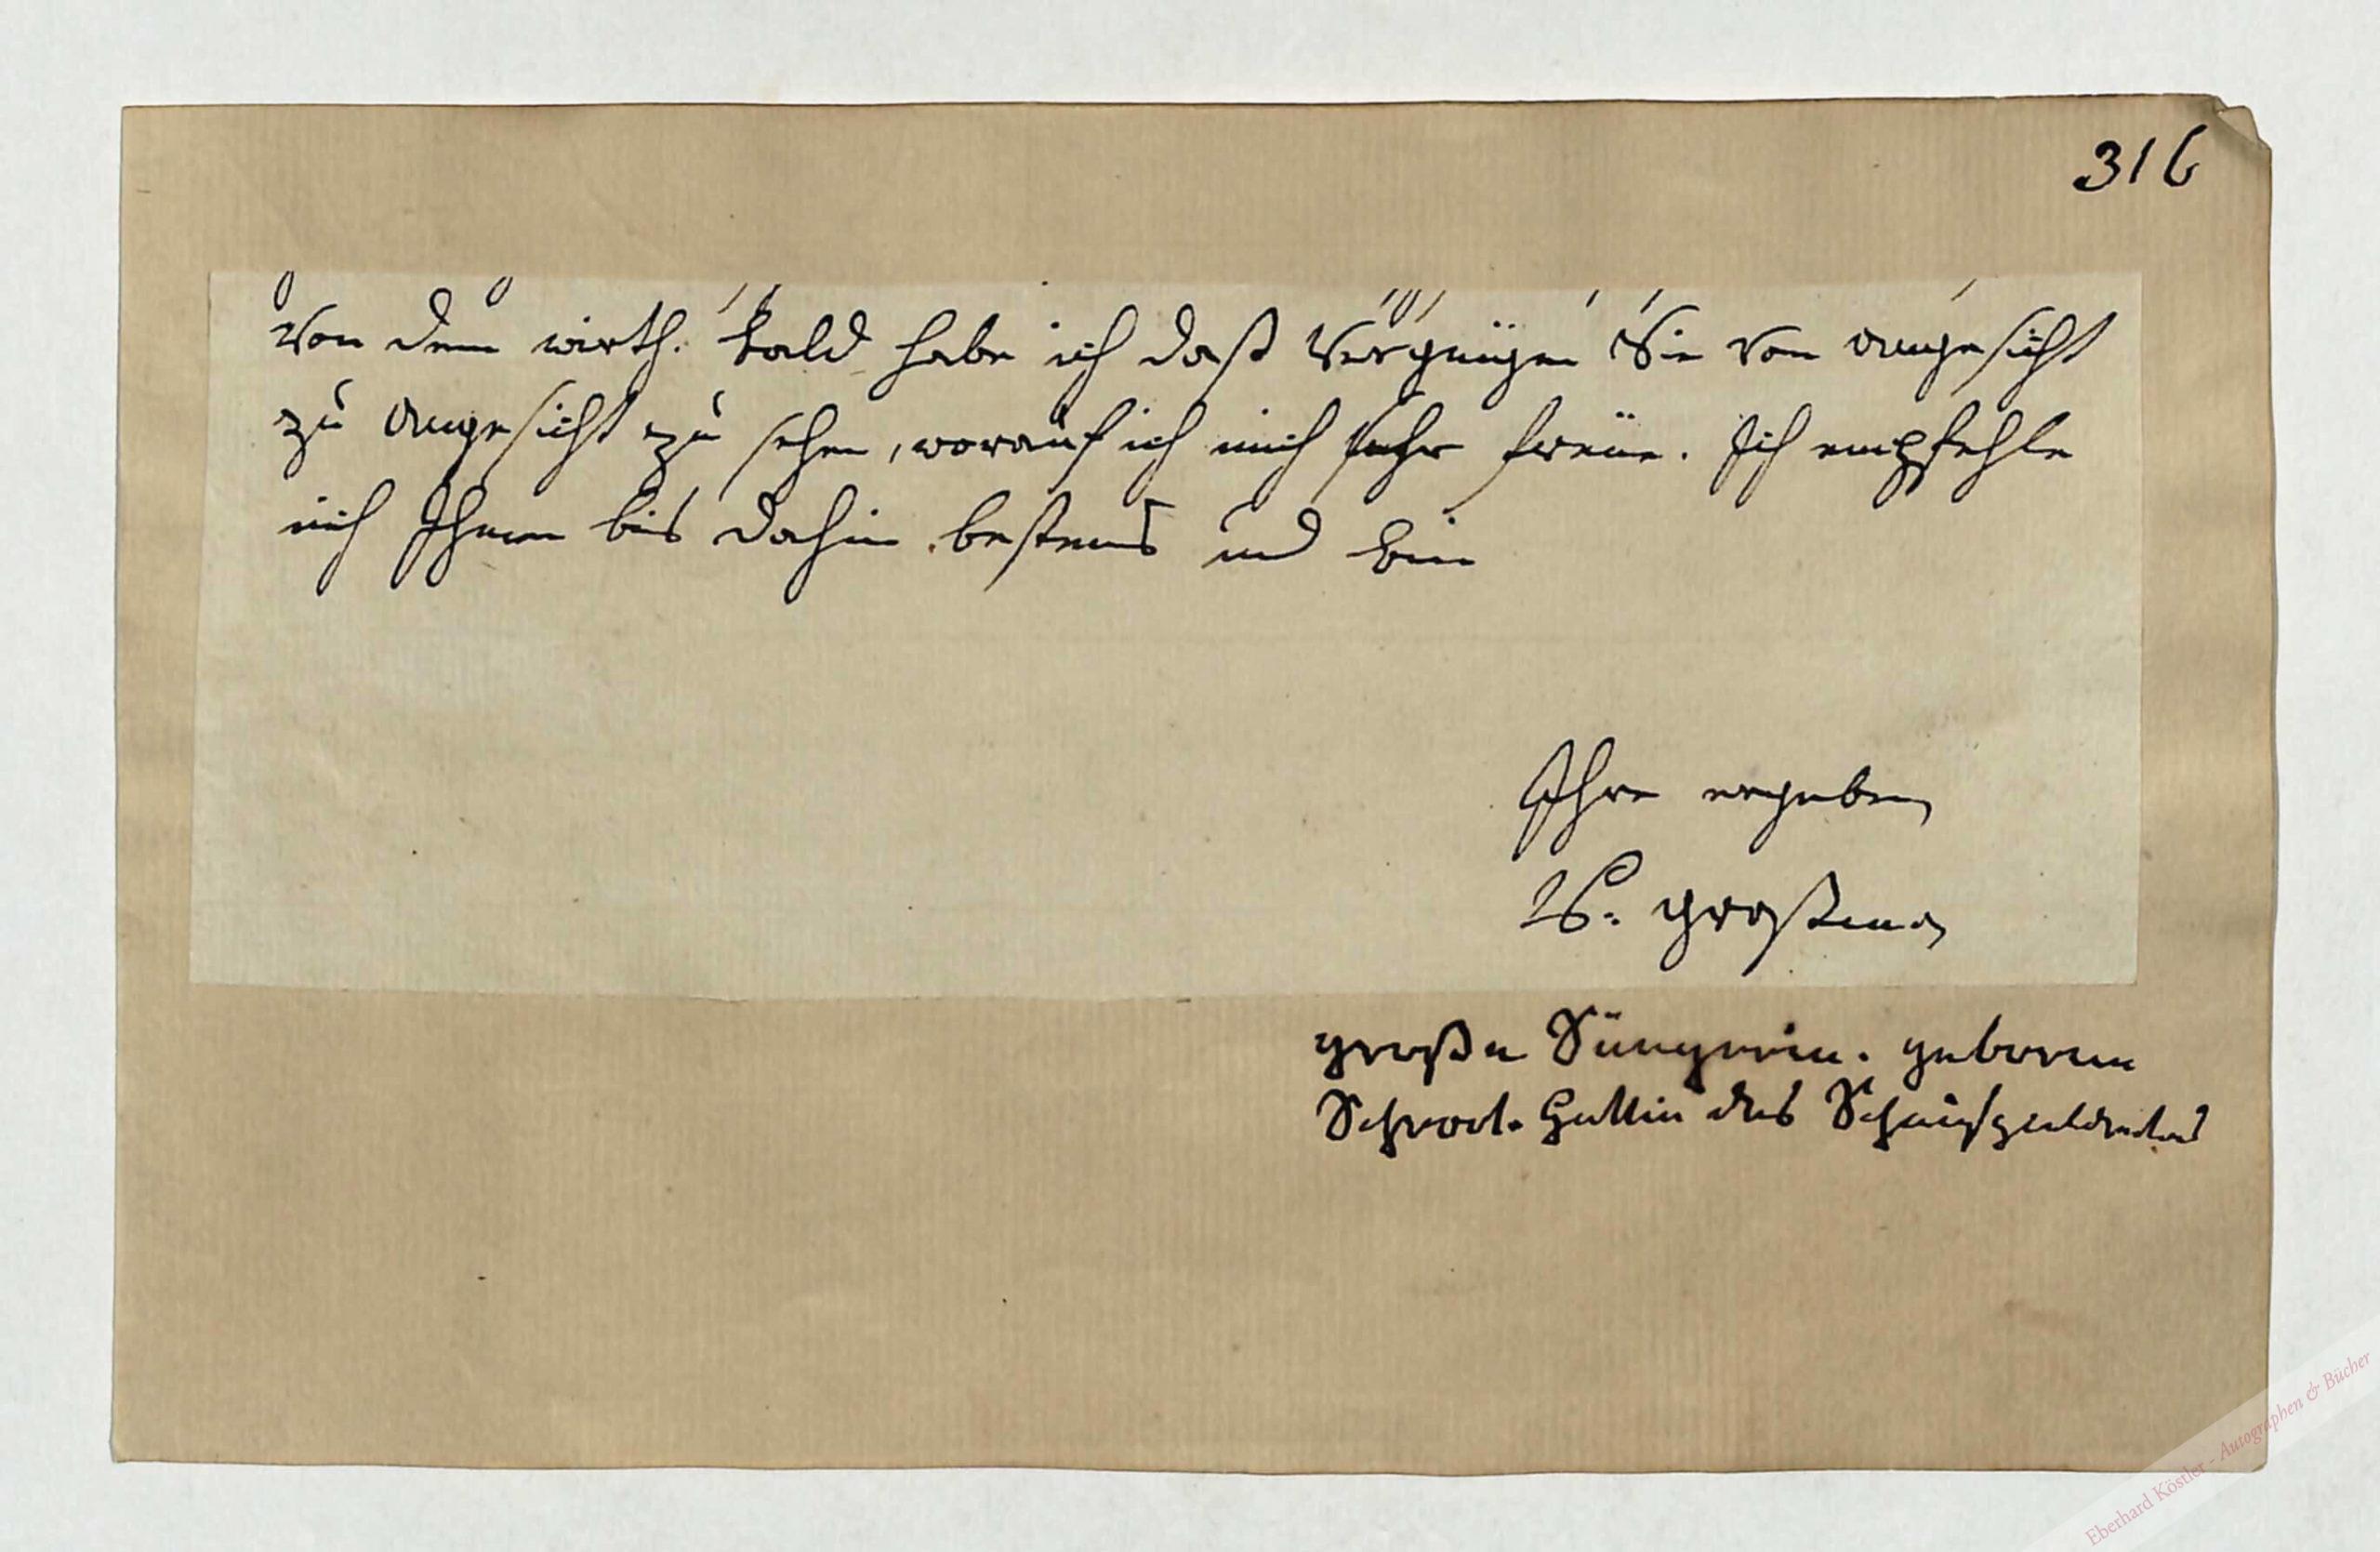 316
von dem wirth. bald habe ich daß Vergnügen Sie von angesicht
zu angesicht zu sehen, worauf ich mich sehr freüe. Ich empfehle
mich Ihnen bis dahin bestens und bin
Ihre ergeben
Großman
große Sängerin. geborene
Schrot. Gattin des
Eberhard Köstler - Autographen & Bücher